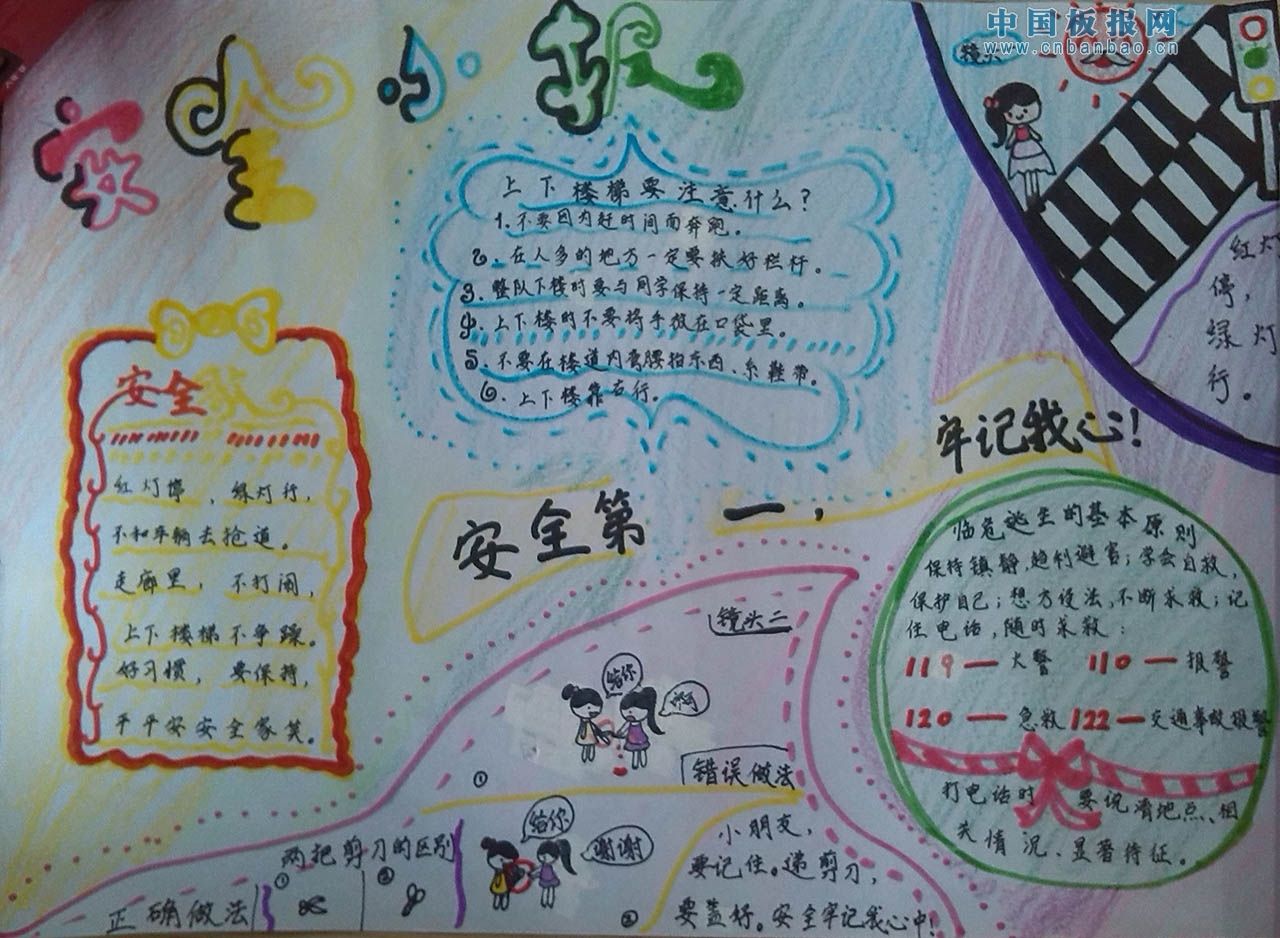 安全小报
中国板报网
www.cnbanbao.cn
上下楼梯要注意什么？
1.不要因为赶时间而奔跑。
2、在人多的地方一定要扶好栏杆。
3、整队下楼时要与同学保持一定距离。
4、上下楼时不要将手放在口袋里。
5、不要在楼道内弯腰拾东西、系鞋带。
6、上下楼靠右行。
红灯
停，
绿灯
行。
安全歌
红灯停，绿灯行，
不和车辆去抢道。
走廊里，不打闹，
上下楼梯不争躁。
好习惯，要保持，
平平安安全家笑。
安全第一，
牢记我心！
临危逃生的基本原则
保持镇静，趋利避害；学会自救，
保护自己；想方设法，不断求救；记
住电话，随时求救：
119—火警 110—报警
120—急救 122—交通事故报警
打电话时 要说清地点、相
关情况、显著特征。
镜头二
给你
①
错误做法
两把剪刀的区别
① ②
正确做法
给你
谢谢
②
小朋友，
要记住。递剪刀，
要盖好。安全牢记我心中！